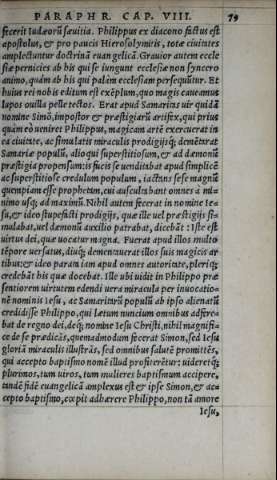 PARAPHR. CAP. VIII. 79
fecerit Iudæorũ sæuitia. Philippus ex diacono factus est
apostolus, & pro paucis Hierosolymitis, totæ ciuitates
amplectuntur doctrinã euangelicã. Grauior autem eccle
siæ pernicies ab his qui se iungunt ecclesiæ non syncero
animo, quàm ab his qui palàm ecclesiam persequũtur. Et
huius rei nobis editum est exẽplum, quo magis caueamus
lupos ouilla pelle tectos. Erat apud Samarias uir quidã
nomine Simõ, impostor & præstigiarũ artifex, qui prius
quàm eò ueniret Philippus, magicam artẽ exercuerat in
ea ciuitate, ac simulatis miraculis prodigijsq; demẽtarat
Samariæ populũ, alioqui superstitiosum, & ad dæmonũ
præstigia propensum: is sucis se uenditabat apud simplicẽ
ac superstitiosæ credulum populum, iactãns sese magnũ
quempiam esse prophetam, cui auscultabant omnes à mi-
nimo usq; ad maximũ. Nihil autem fecerat in nomine Ie-
su, & ideo stupefacti prodigijs, quæ ille uel præstigijs si-
mulabat, uel dæmonũ auxilio patrabat, dicebãt: Iste est
uirtus dei, quæ uocatur magna. Fuerat apud illos multo
tẽpore uersatus, diuq; dementauerat illos suis magicis ar
tibus: & ideo param iam apud omnes autoritate, plerìq;
credebãt his quæ docebat. Ille ubi uidit in Philippo præ
sentiorem uirtutem edendi uera miracula per inuocatio-
nẽ nominis Iesu, ac Samaritarũ populũ ab ipso alienatũ
credidisse Philippo, qui lætum nuncium omnibus adfere-
bat de regno dei, deq; nomine Iesu Christi, nihil magnifi-
ce de se prædicãs, quemadmodum fecerat Simon, sed Iesu
gloriã miraculis illustrãs, sed omnibus salutẽ promittẽs,
qui accepto baptismo nomẽ illud profiterẽtur: uideretq;
plurimos, tum uiros, tum mulieres baptismum accipere,
tandẽ fidẽ euangelicã amplexus est & ipse Simon, & ac-
cepto baptismo, cœpit adhærere Philippo, non tã amore
Iesu,